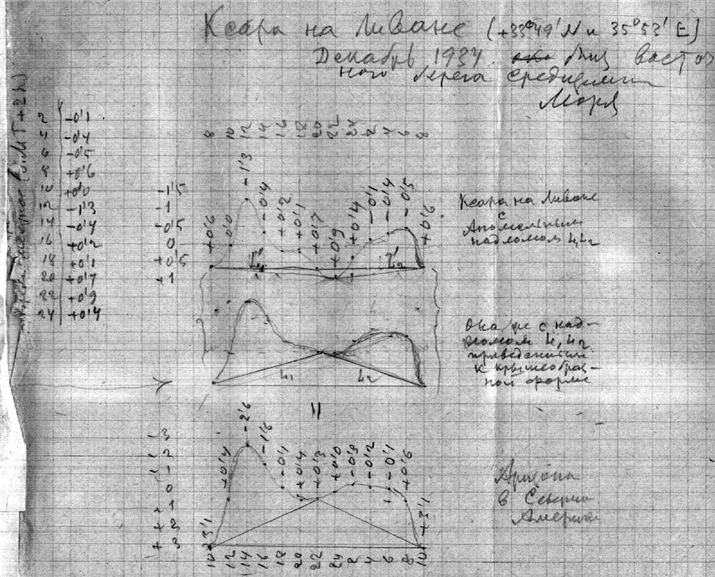 Ксара на Ливане (+33°49' N и 35°53' E)
Декабрь 1934 близ восточ
ного берега Средиземн
Моря
(GMT+2h)
2 -0'1
4 -0'4
6 -0'5
8 +0'6
10 +0'0
12 -1'3
14 -0'4
16 +0'2
18 +0'1
20 +0'7
22 +0'9
24 +0'4
8 10 12 14 16 18 20 22 24 2 4 6 8
-1'5
-1
-0'5
0
+0'5
+1
+0'6 0'0 -1'3 -0'4 +0'2 +0'1 +0'7 +0'9 +0'4 -0'1 -0'4 -0'5 +0'6
Ксара на Ливане
с
Аномальным
надломом L1 L2
L1 L2
Она же с над-
ломом L1 L2
приведенным
к крышеобраз-
ной форме
L1 L2
=
-3
-2
-1
0
+1
+2
+3
+3'1 +0'4 -2'6 -1'6 -0'1 +0'4 +0'3 +0'0 -0'3 -0'2 +0'1 +0'6 +3'1
10 12 14 16 18 20 22 24 2 4 6 8 10
Аризона
в Северной
Америке